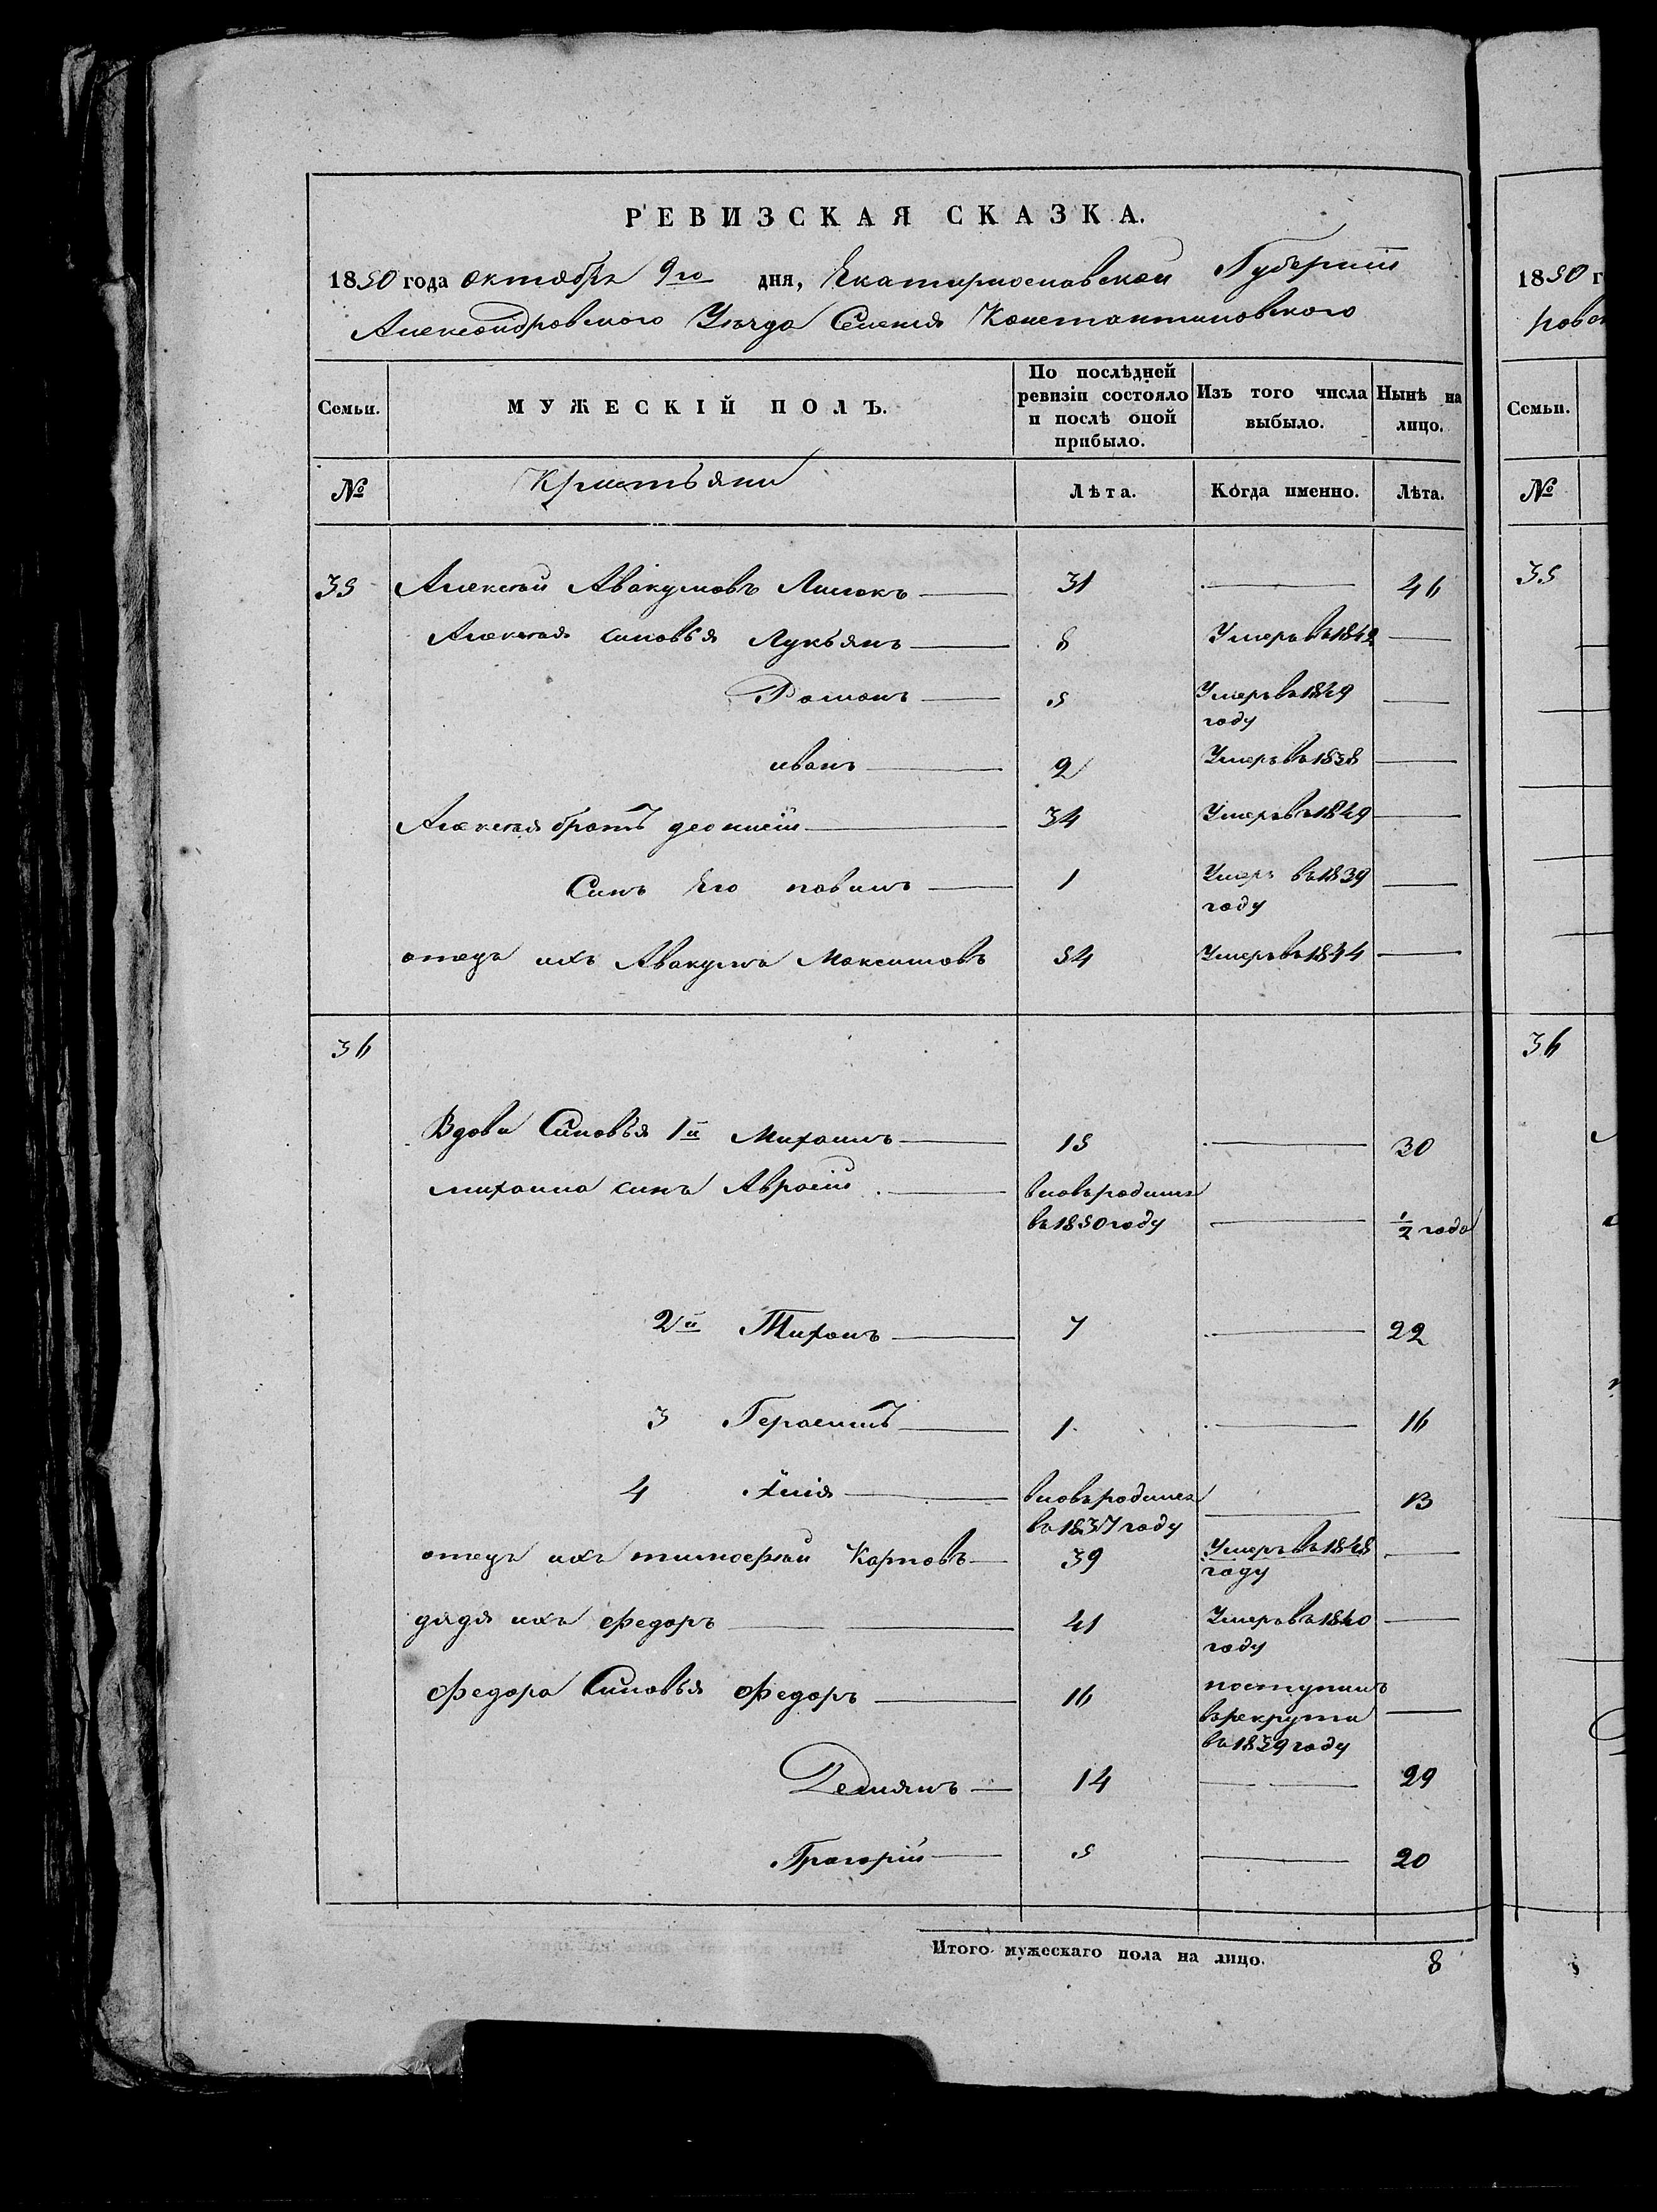 РЕВИЗСКАЯ СКАЗКА.
1850 года октября 9го дня, Екатеринославской Губерніи
Александровского Уѣзда Селенія Константиновского
Семьи. МУЖЕСКІЙ ПОЛЪ. По послѣдней ревизіи состояло и послѣ оной прибыло. Изъ того числа выбыло. Нынѣ на лицо.
№ Крестьяни Лѣта. Когда именно. Лѣта.
35 Алексѣй Авакумовъ 31 — 46
Алексѣя синовья Лукьянъ — 8 Умеръ въ 1842 —
Романъ — 5 Умеръ въ 1849 году —
иванъ — 2 Умеръ въ 1838 —
Алексѣя братъ — 34 Умеръ въ 1849 —
Синъ Его — 1 Умеръ въ 1839 году —
отецъ ихъ Авакумъ Максимовъ 54 Умеръ въ 1844 —
36
Вдови Синовья 1й Михаилъ — 15 — 30
михаила синъ — вновьродился въ 1850 году — ½ года
2й Тихонъ — 7 — 22
3 Герасимъ — 1 — 16
4 Илія — вновьродился въ 1837 году — 13
отецъ ихъ тимофѣй Карповъ — 39 Умеръ въ 1848 году —
дядя ихъ Федоръ — 41 Умеръ въ 1840 году —
Федора Синовья Федоръ — 16 поступилъ въ рекрути въ 1839 году —
Демянъ — 14 — 29
Григорій — 5 — 20
Итого мужескаго пола на лицо. 8
1850 г
Семьи.
№
35
36